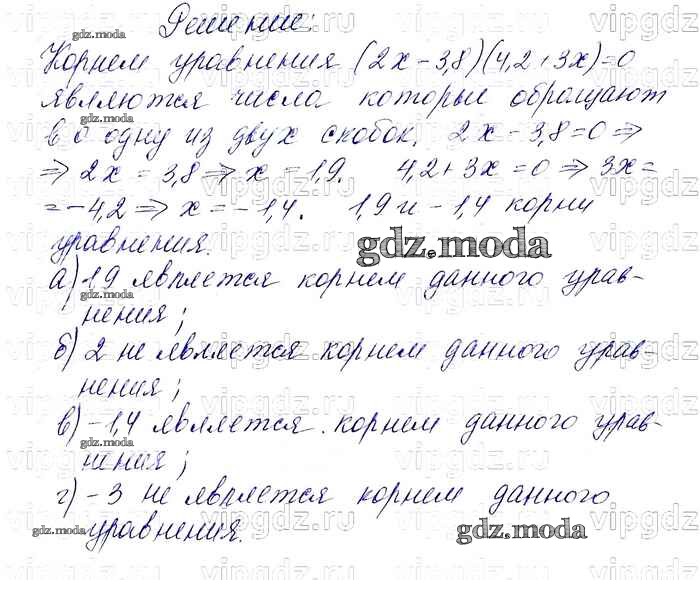 Решение:
Корнем уравнения (2x-3,8)(4,2+3x)=0
являются числа которые обращают
в 0 одну из двух скобок. 2x-3,8=0 ⇒
⇒ 2x = 3,8 ⇒ x = 1,9. 4,2+3x = 0 ⇒ 3x =
= -4,2 ⇒ x = -1,4. 1,9 и -1,4 корни
уравнения.
gdz.moda
а) 1,9 является корнем данного урав-
нения;
б) 2 не является корнем данного урав-
нения;
в) -1,4 является корнем данного урав-
нения;
г) -3 не является корнем данного
уравнения.
gdz.moda